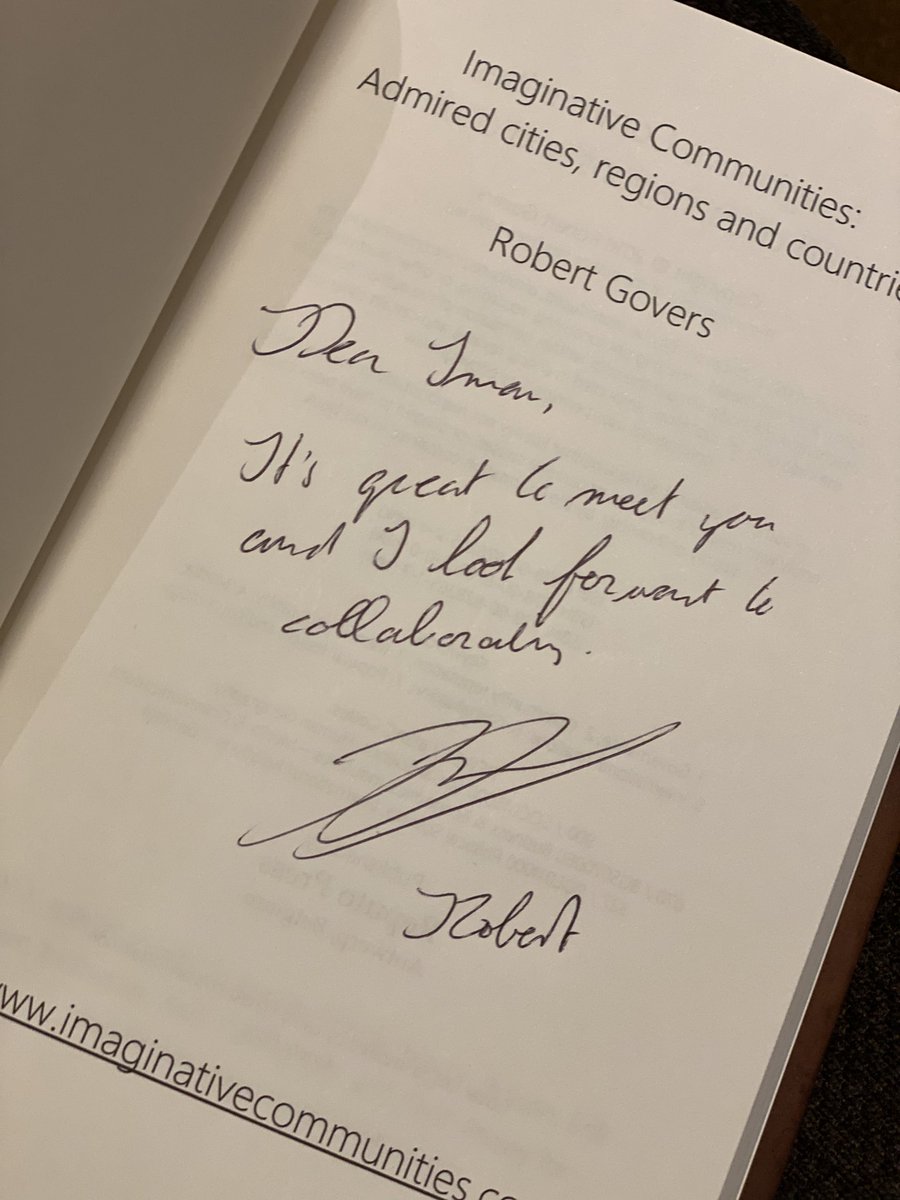 Imaginative Communities:
Admired cities, regions and countrie
Robert Govers
Dear Iman,
It's great to meet you
and I look forward to
collaborating.
Robert
www.imaginativecommunities.co